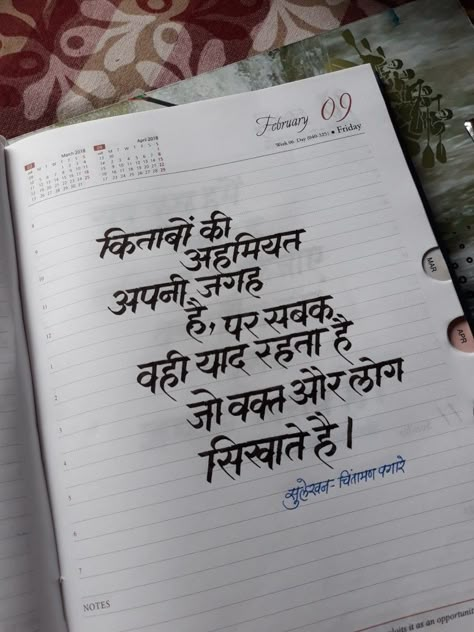 February 09
Week 06 Day (040-325) • Friday
March 2018
April 2018
किताबों की
अहमियत
अपनी जगह
है, पर सबक
वही याद रहता है
जो वक्त और लोग
सिखाते है।
सुलेखन - चिंतामण पगारे
MAR
APR
NOTES
it as an opportunit